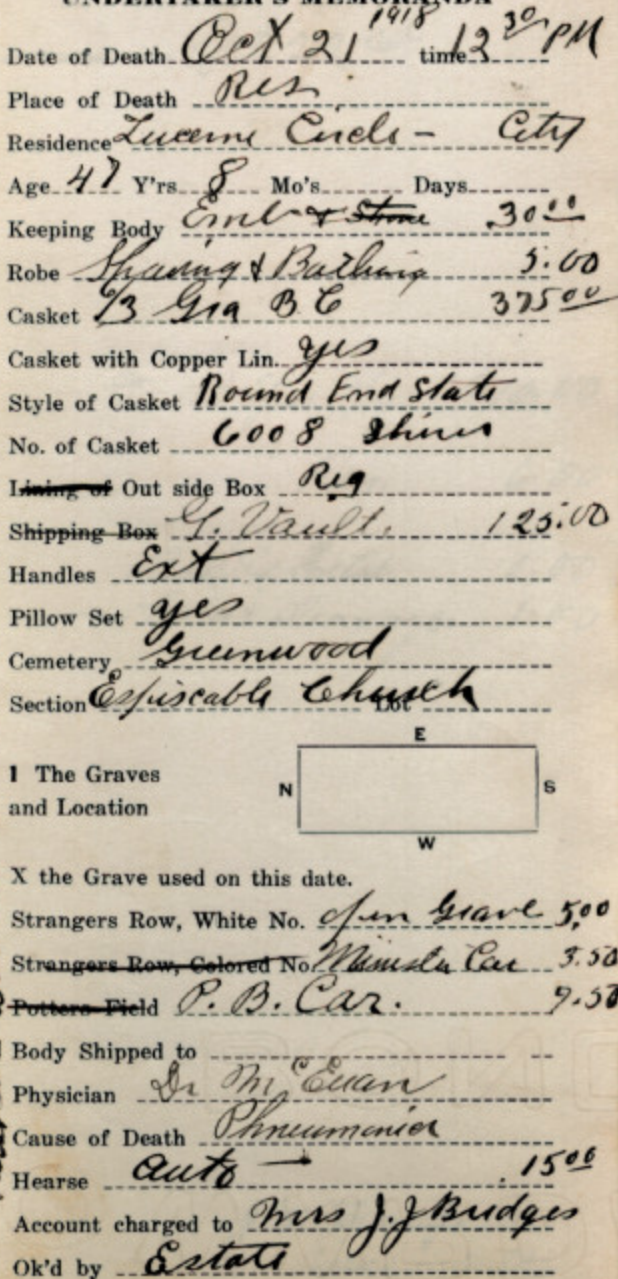 UNDERTAKER'S MEMORANDA
Date of Death Oct 21 1918 time 12 30 PM
Place of Death Res
Residence Lucerne Circle - City
Age 47 Y'rs 8 Mo's Days
Keeping Body Emb & 30 00
Robe Shaving & Bathing 5.00
Casket 2/3 Gra B C 375 00
Casket with Copper Lin. yes
Style of Casket Round End State
No. of Casket 6008
Lining of Out side Box Reg
Shipping Box G. Vault. 125.00
Handles Ext
Pillow Set yes
Cemetery Greenwood
Section Espiscable Church Lot
E
1 The Graves
and Location
N
S
W
X the Grave used on this date.
Strangers Row, White No. open Grave 5,00
Strangers Row, Colored No. Minister Car 3.50
Potters Field P. B. Car. 9.50
Body Shipped to
Physician Dr McEwan
Cause of Death Phneumonia
Hearse auto - 15 00
Account charged to Mrs J. J Bridges
Ok'd by Estate